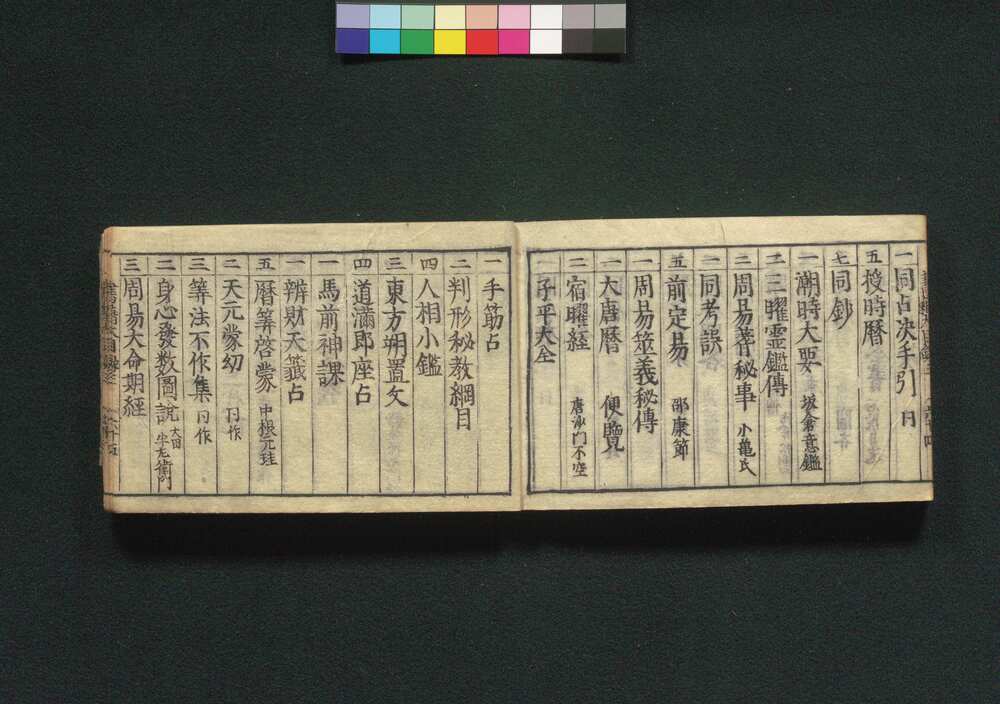 一 同占决手引 同
五 授時暦
七 同鈔
一 潮時大要 坂倉意鑑
二 三曜霊鑑傳
二 周易蓍秘事 小亀氏
一 同考誤
五 前定易 邵康節
一 周易筮義秘傳
一 大唐暦 便覽
二 宿曜経 唐沙門不空
子平大全
一 手筋占
二 判形秘教綱目
四 人相小鑑
三 東方朔置文
四 道滿郎座占
一 馬前神課
一 辨財天籤占
五 暦筭啓蒙 中根元珪
二 天元蒙幼 同作
三 筭法不作集 同作
二 身心發数圖説 大田 半左衛門
三 周易大命期經